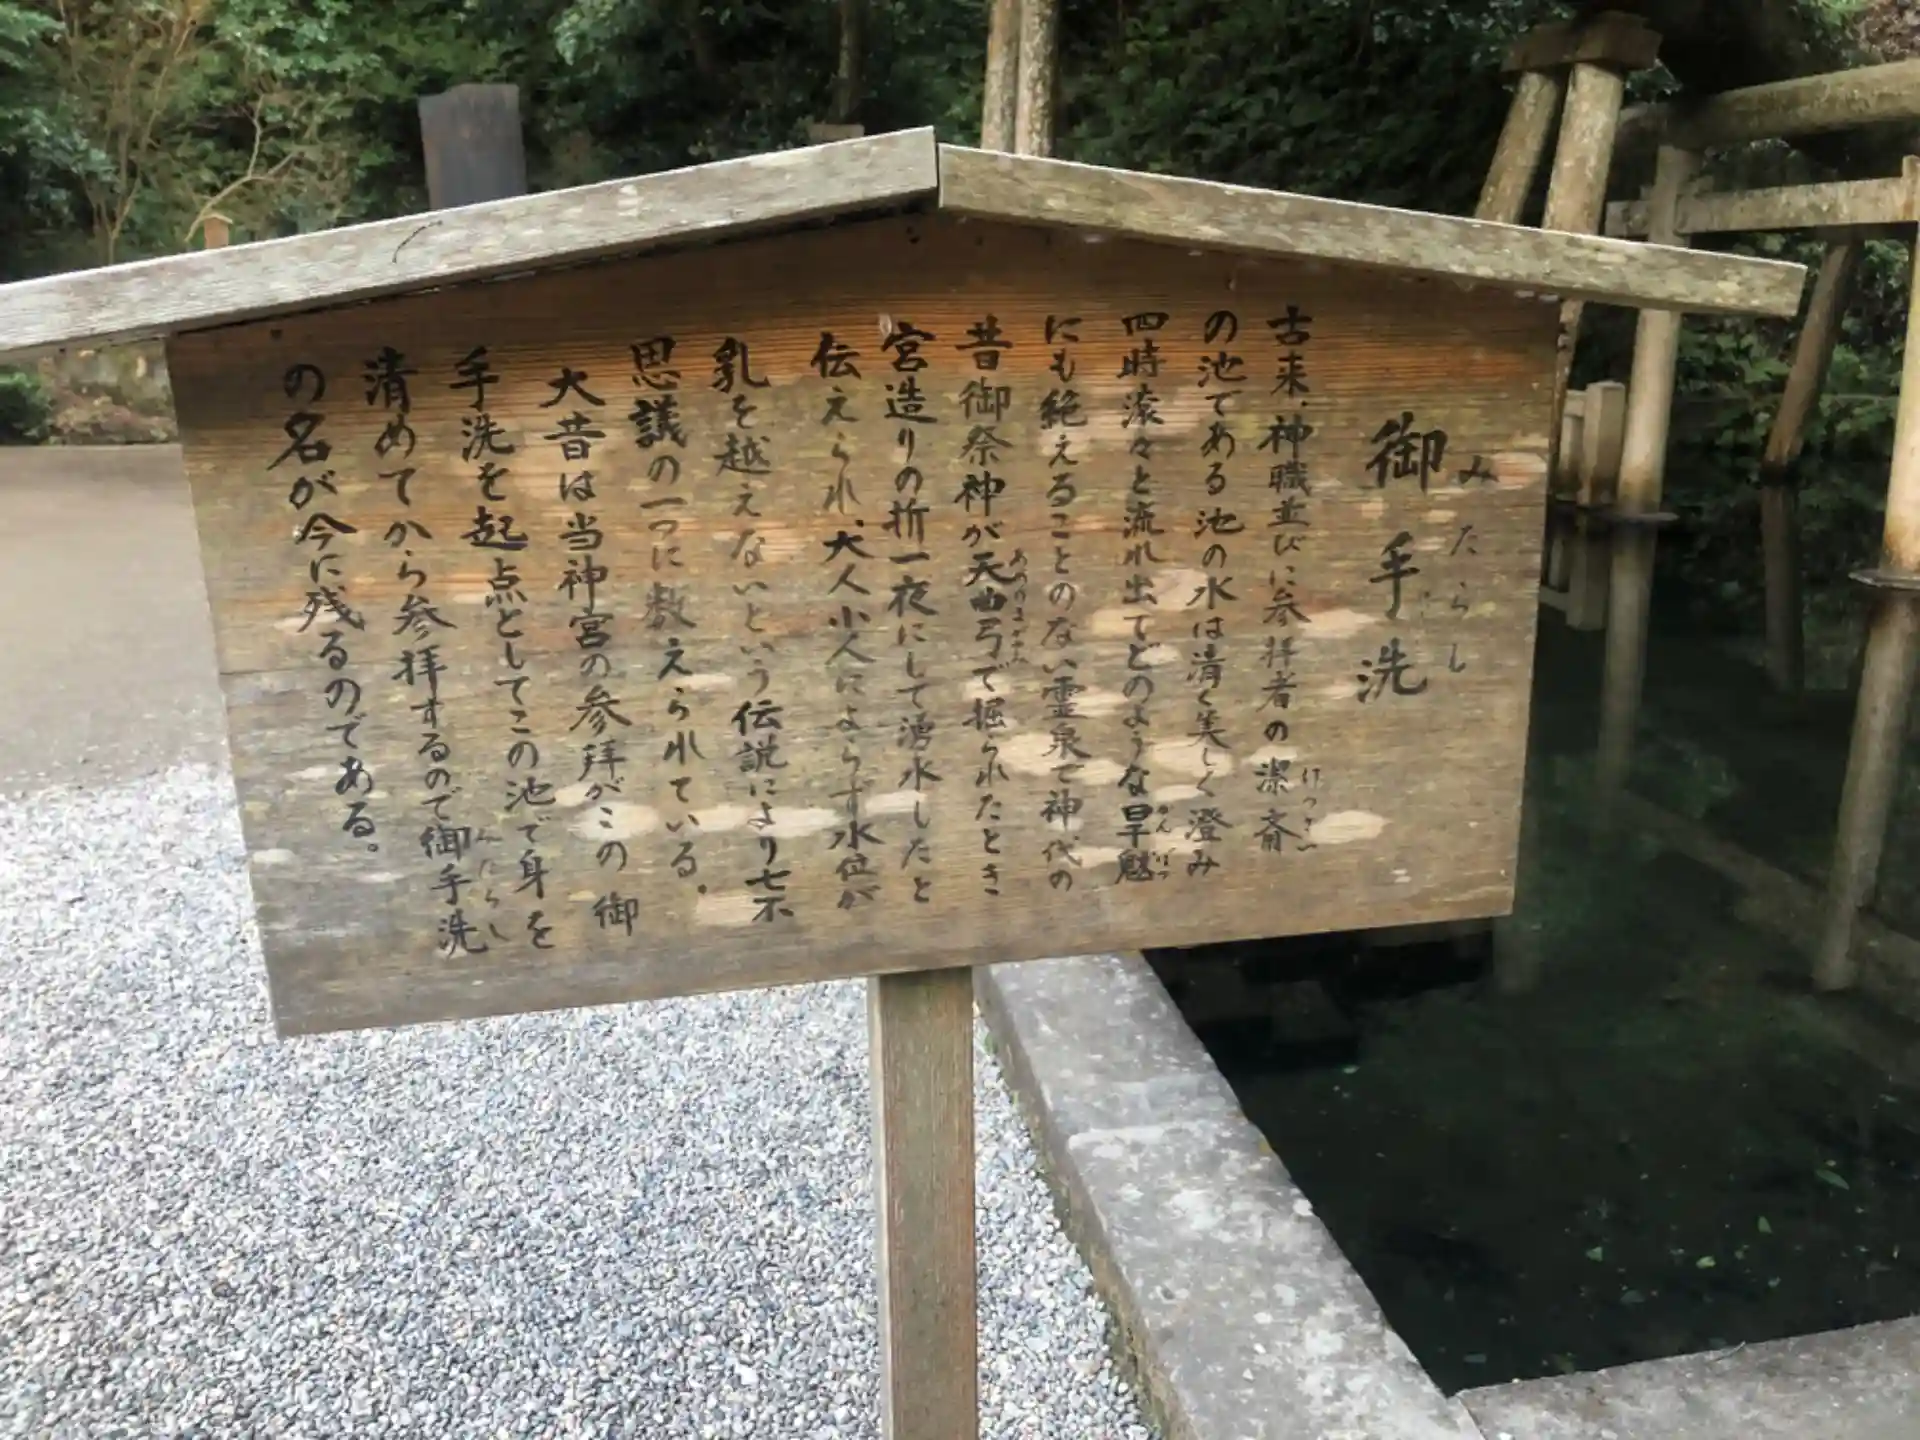 御手洗
みたらし
古来、神職並びに参拝者の潔斎
けっさい
の池である池の水は清く美しく澄み
四時滾々と流れ出てどのような旱魃
かんばつ
にも絶えることのない霊泉で神代の
昔御祭神が天曲弓で掘られたとき
あめのまがゆみ
宮造りの折一夜にして湧水したと
伝えられ、大人小人によらず水位が
乳を越えないという伝説により七不
思議の一つに数えられている。
大昔は当神宮の参拝がこの御
手洗を起点としてこの池で身を
清めてから参拝するので御手洗
みたらし
の名が今に残るのである。